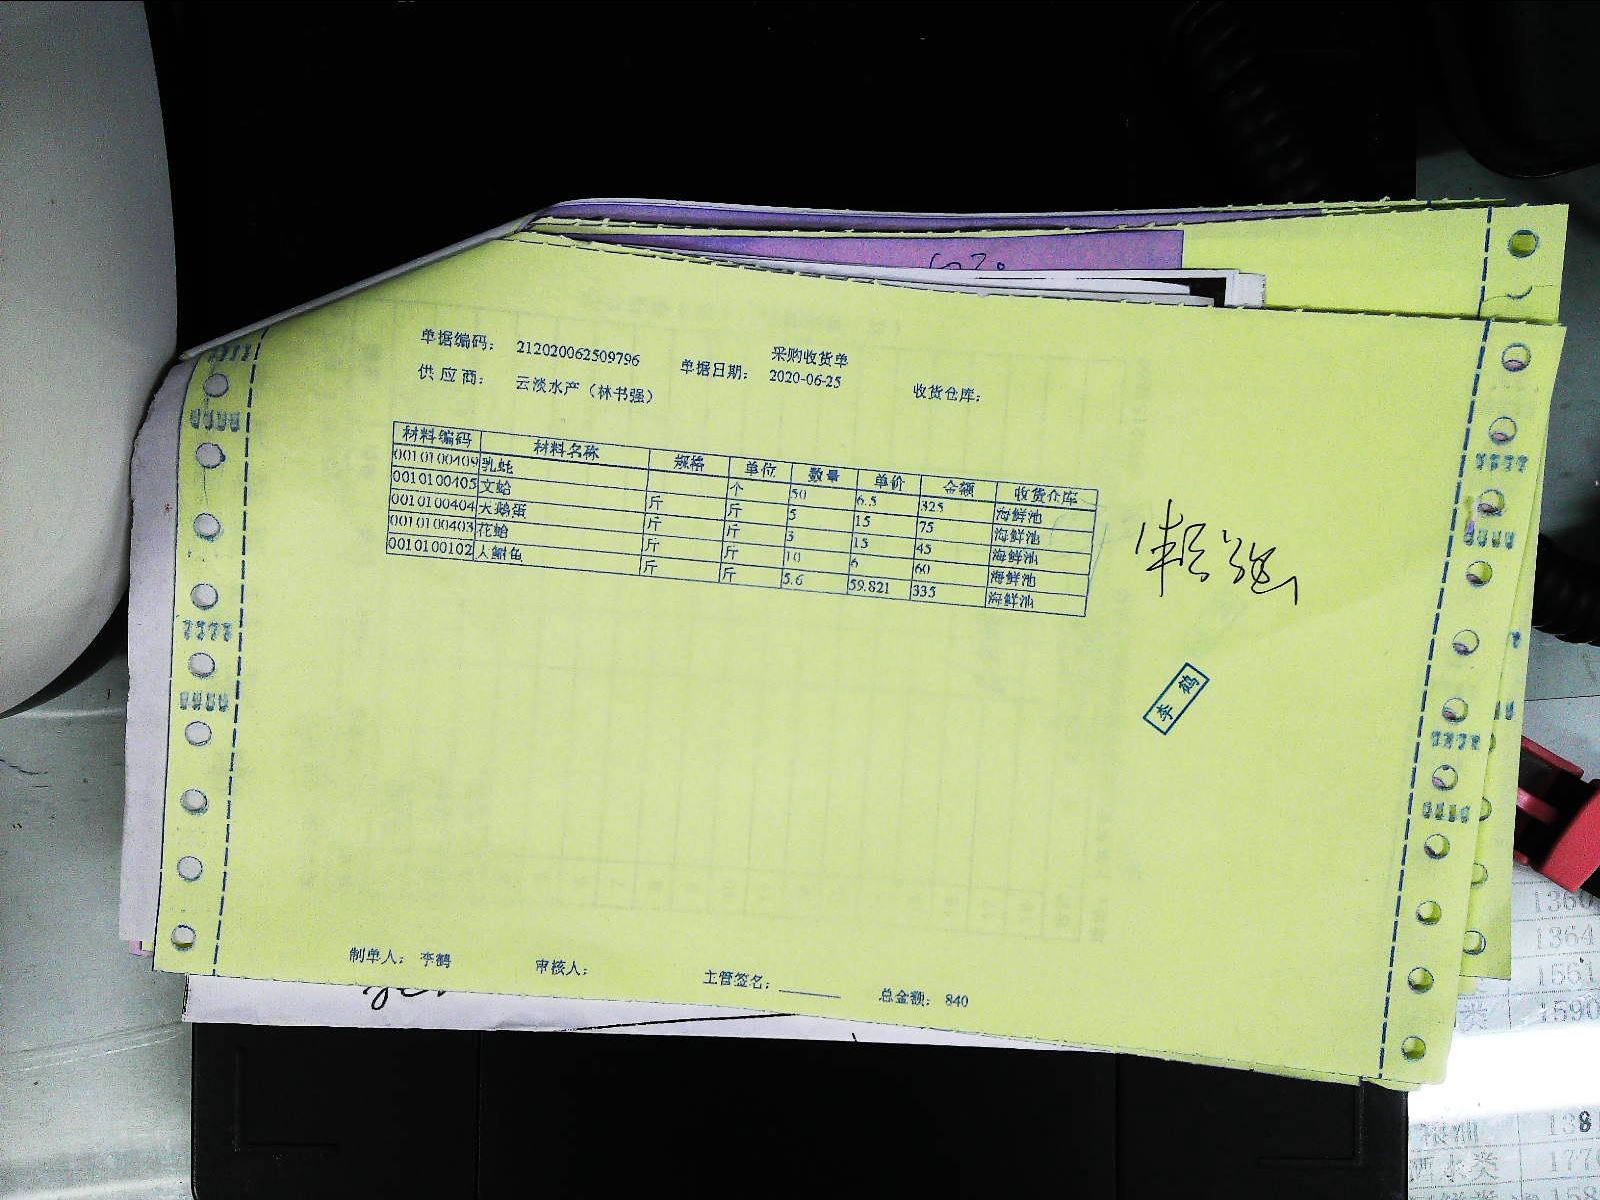 采购收货单
单据编码： 212020062509796 单据日期： 2020-06-25 收货仓库：
供应商： 云淡水产（林书强）
材料编码 材料名称 规格 单位 数量 单价 金额 收货仓库
0010100409 乳蚝 个 50 6.5 325 海鲜池
0010100405 文蛤 斤 斤 5 15 75 海鲜池
0010100404 天鹅蛋 斤 斤 3 15 45 海鲜池
0010100403 花蛤 斤 斤 10 6 60 海鲜池
0010100102 斤 斤 5.6 59.821 335 海鲜池
李鹤
制单人： 李鹤 审核人： 主管签名： 总金额： 840
1360
1364
1561
类 1590
138
西水类 177